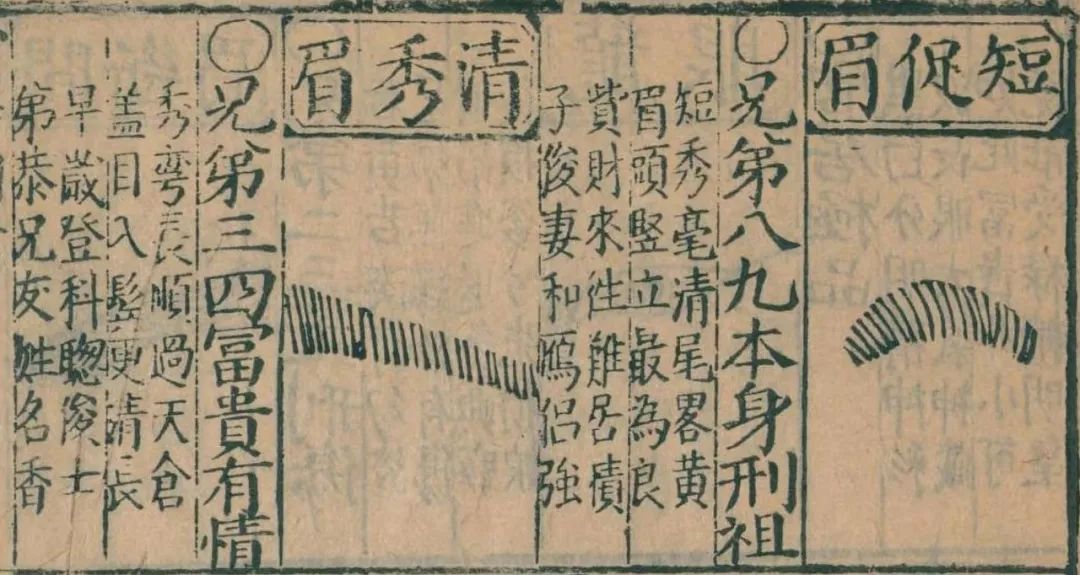 短促眉
○兄第八九本身刑祖
短秀毫清尾畧黄
眉頭竪立最為良
貲財來往難居積
子俊妻和鴈侣強
清秀眉
○兄第三四冨貴有情
秀弯長順過天倉
盖目入鬂更清長
早歳登科聰俊士
第恭兄友姓名香